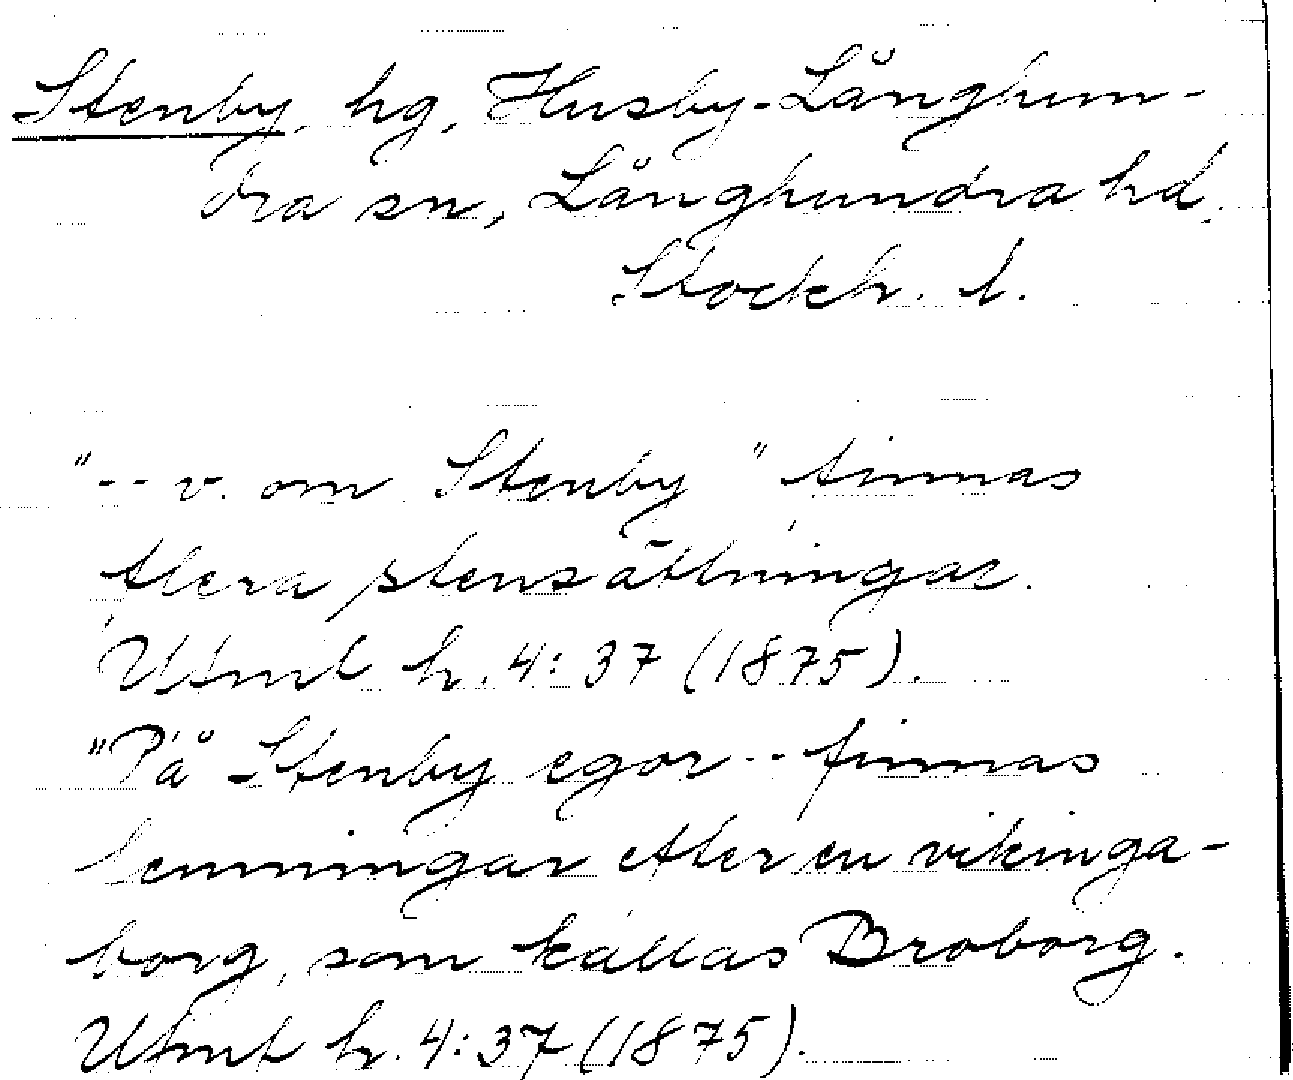 Stenby, hg, Husby-Långhun-
dra sn, Långhundra hd.
Stockh. l.
"-- v. om Stenby" finnas
flera stensättningar.
Ufmt h. 4:37 (1875).
"På Stenby egor -- finnas
lemningar efter en vikinga-
borg, som kallas Broborg.
Ufmt h. 4:37 (1875).